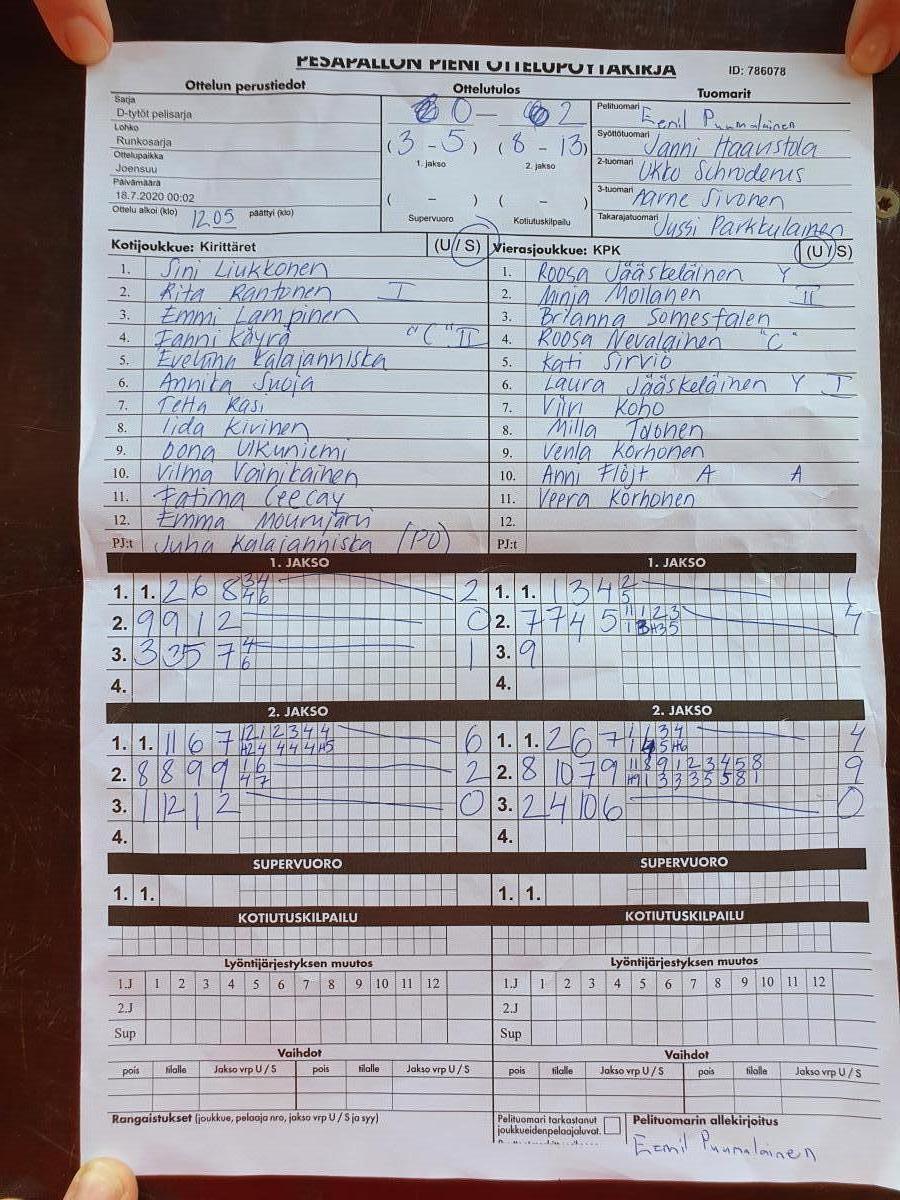 PESÄPALLON PIENI OTTELUPÖYTÄKIRJA
ID: 786078
Ottelun perustiedot
Ottelutulos
Tuomarit
Sarja
D-tytöt pelisarja
Lohko
Runkosarja
Ottelupaikka
Joensuu
Päivämäärä
18.7.2020 00:02
Ottelu alkoi (klo) 12.05 päättyi (klo)
0 — 2
(3 - 5) (8 - 13)
1. jakso 2. jakso
( - ) ( - )
Supervuoro Kotiutuskilpailu
Pelituomari Eemil Puumalainen
Syöttötuomari Janni Haavistola
2-tuomari Ukko Schroderus
3-tuomari Aarne Sivonen
Takarajatuomari Jussi Parkkulainen
Kotijoukkue: Kirittäret (U / S)
1. Sini Liukkonen
2. Rita Rantonen I
3. Emmi Lampinen
4. Fanni Käyrä "C" II
5. Eveliina Kalajanniska
6. Annika Suoja
7. Tetta Räsi
8. Iida Kivinen
9. Oona Ulkuniemi
10. Vilma Vainikainen
11. Fatima Ceecay
12. Emma Mourujärvi
PJ:t Juha Kalajanniska (PJ)
Vierasjoukkue: KPK (U / S)
1. Roosa Jääskeläinen Y
2. Minja Moilanen II
3. Brianna Somesfalen
4. Roosa Nevalainen "C"
5. Kati Sirviö
6. Laura Jääskeläinen Y I
7. Viivi Koho
8. Milla Toonen
9. Venla Korhonen
10. Anni Flöjt A A
11. Veera Korhonen
12.
PJ:t
1. JAKSO
1. 1. 2 6 8 34 46 2
2. 9 9 1 2 0
3. 3 35 7 4 6 1
4.
1. JAKSO
1. 1. 1 3 4 2 5 1
2. 7 7 4 5 11 1 2 3 1 3 H3 5 4
3. 9
4.
2. JAKSO
1. 1. 11 6 7 12 1 2 3 4 4 H2 4 4 4 4 H5 6
2. 8 8 9 9 1 6 4 7 2
3. 1 12 1 2 0
4.
2. JAKSO
1. 1. 2 6 7 1 1 3 4 1 4 5 H6 4
2. 8 10 7 9 11 8 9 1 2 3 4 5 8 H9 1 3 3 3 5 5 8 1 9
3. 2 4 10 6 0
4.
SUPERVUORO
1. 1.
SUPERVUORO
1. 1.
KOTIUTUSKILPAILU
KOTIUTUSKILPAILU
Lyöntijärjestyksen muutos
1.J 1 2 3 4 5 6 7 8 9 10 11 12
2.J
Sup
Lyöntijärjestyksen muutos
1.J 1 2 3 4 5 6 7 8 9 10 11 12
2.J
Sup
Vaihdot
pois tilalle Jakso vrp U / S pois tilalle Jakso vrp U / S
Vaihdot
pois tilalle Jakso vrp U / S pois tilalle Jakso vrp U / S
Rangaistukset (joukkue, pelaaja nro, jakso vrp U / S ja syy)
Pelituomari tarkastanut
joukkueidenpelaajaluvat.
Pelituomarin allekirjoitus
Eemil Puumalainen